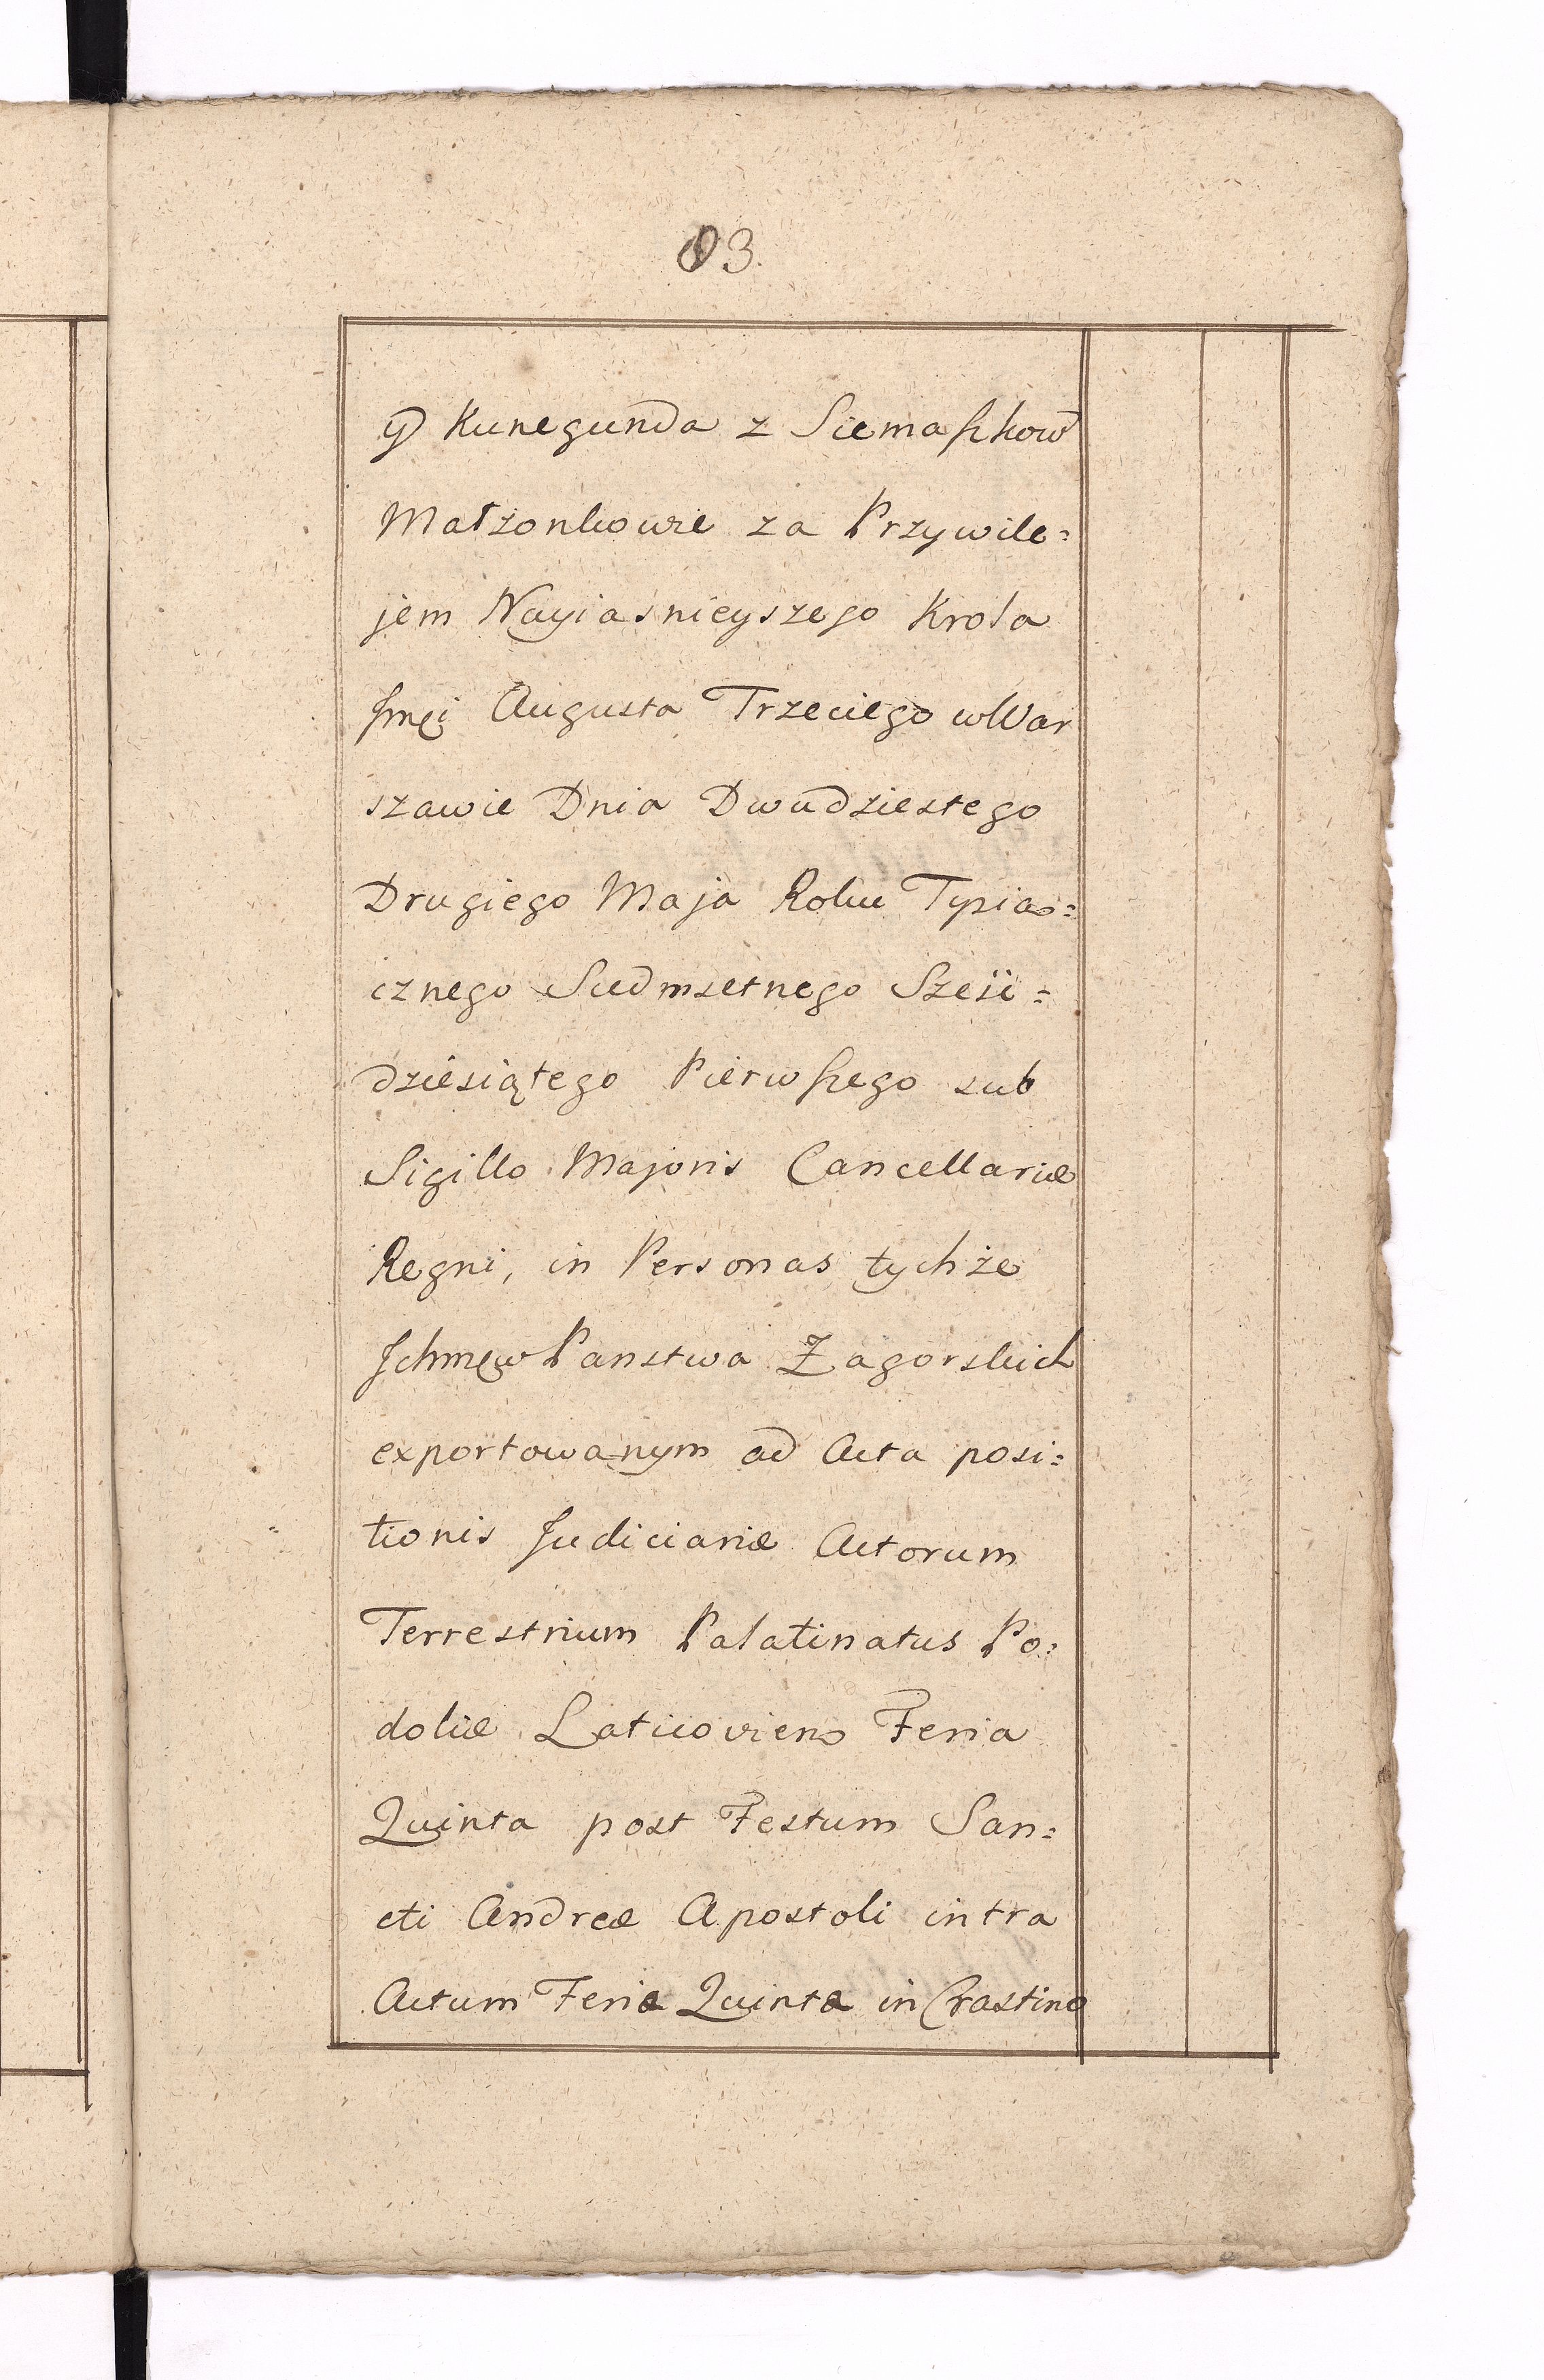 83.
y Kunegunda z Siemaszkow
Małżonkowie za Przywile=
jem Nayiasnieyszego Krola
Jmći Augusta Trzeciego w War
szawie Dnia Dwudziestego
Drugiego Maja Roku Tysia=
cznego Siedmsetnego Sześć=
dziesiątego Pierwszego sub
Sigillo Majoris Cancellariæ
Regni, in Personas tychże
Jchmćw Panstwa Zagorskich
exportowanym ad Acta posi=
tionis Judiciariæ Actorum
Terrestrium Palatinatus Po=
doliæ Laticoviens Feria
Quinta post Festum San=
cti Andreæ Apostoli intra
Actum Feriæ Quintæ in Crastino